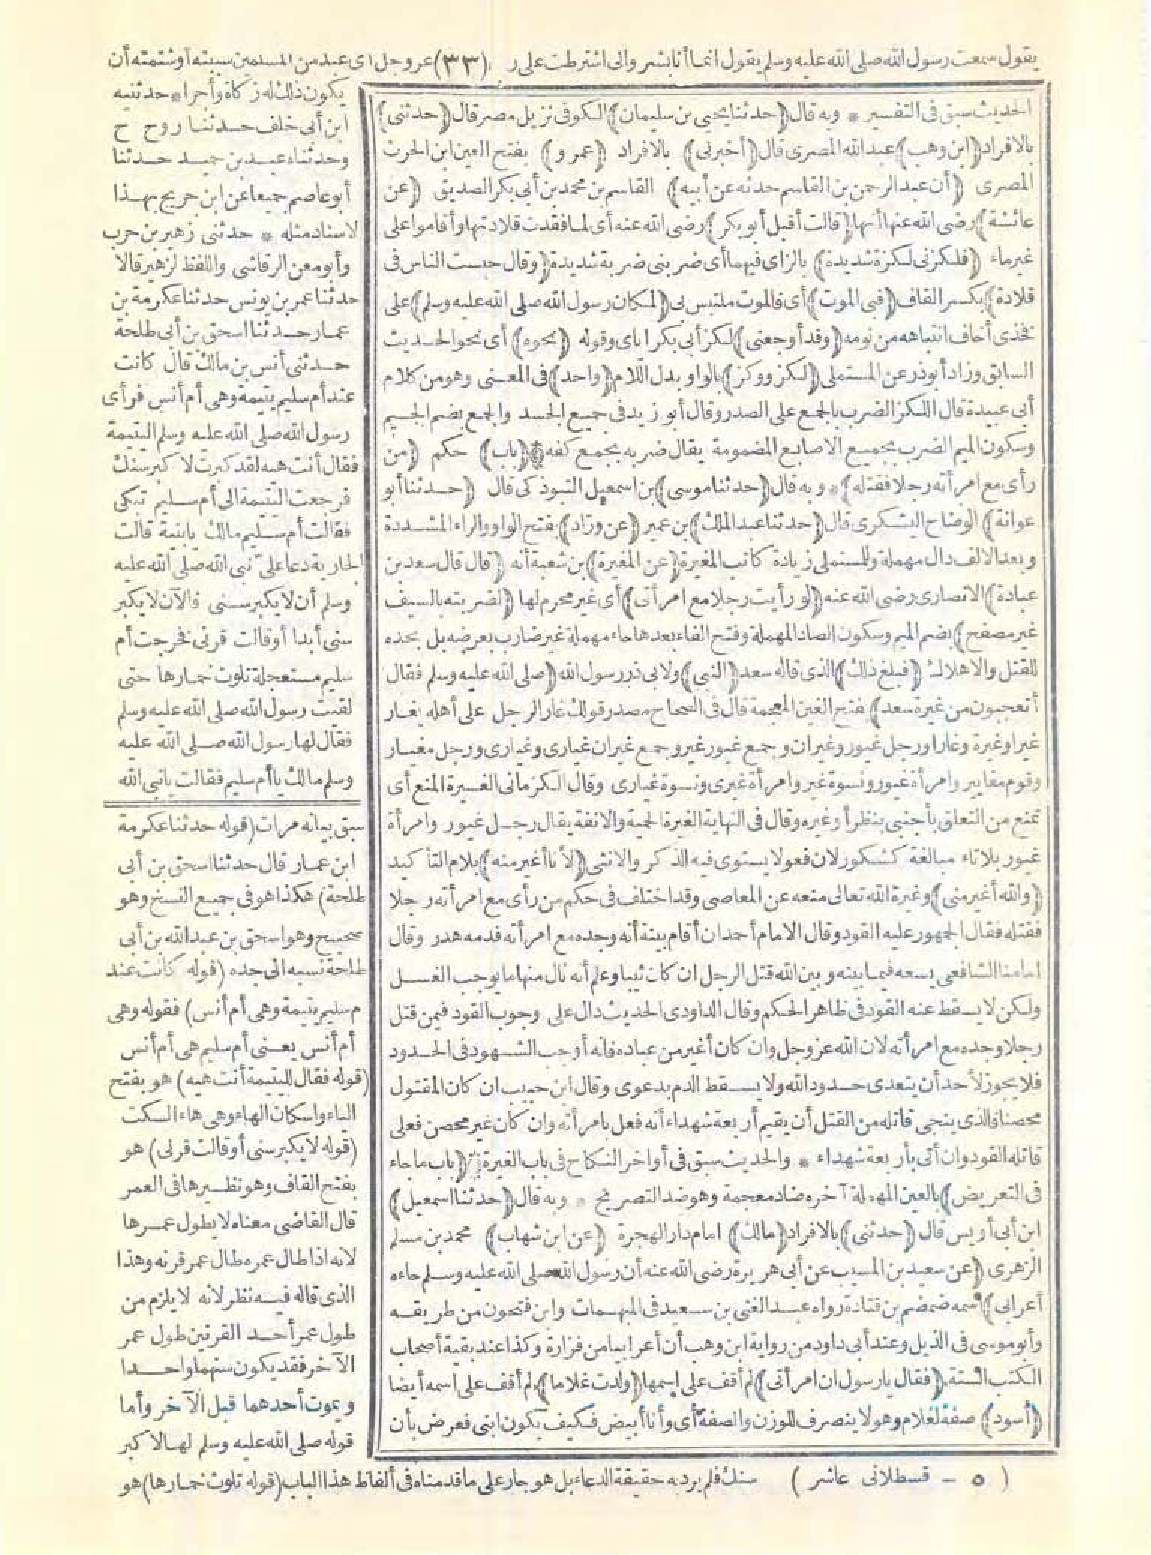 يقول سمعت رسول الله صلى الله عليه وسلم يقول انما أنا بشر وانى اشترطت على ر (٣٣) عز وجل أى عبد من المسلمين سببته أو شتمته أن
الحديث سبق فى التفسير * وبه قال (حدثنا يحيى بن سليمان) الكوفى نزيل مصر قال (حدثنى)
بالافراد (ابن وهب) عبد الله المصرى قال (أخبرنى) بالافراد (عمرو) بفتح العين ابن الحرث
المصرى (أن عبد الرحمن بن القاسم حدثه عن أبيه) القاسم بن محمد بن أبى بكر الصديق (عن
عائشة) رضى الله عنها أنها (قالت أقبل أبو بكر) رضى الله عنه أى لما فقدت قلادتها وأقاموا على
غير ماء (فلكزنى لكزة شديدة) بالزاى فيهما أى ضربنى ضربة شديدة (وقال حبست الناس فى
قلادة) بكسر القاف (فبى الموت) أى فالموت ملتبس بى (لمكان رسول الله صلى الله عليه وسلم) على
فخذى أخاف انتباهه من نومه (وقد أوجعنى) لكز أبى بكر اياى وقوله (نحوه) أى نحو الحديث
السابق وزاد أبو ذر عن المستملى (لكز ووكز) بالواو بدل اللام (واحد) فى المعنى وهو من كلام
أبى عبيدة قال اللكز الضرب بالجمع على الصدر وقال أبو زيد فى جميع الجسد والجمع بضم الجيم
وسكون الميم الضرب بجميع الاصابع المضمومة يقال ضربه بجمع كفه (باب) حكم (من
رأى مع امرأته رجلا فقتله) * وبه قال (حدثنا موسى) بن اسمعيل التبوذكى قال (حدثنا أبو
عوانة) الوضاح اليشكرى قال (حدثنا عبد الملك) بن عمير (عن وراد) بفتح الواو والراء المشددة
وبعد الالف دال مهملة وللمستملى زيادة كاتب المغيرة (عن المغيرة) بن شعبة أنه (قال قال سعد بن
عبادة) الانصارى رضى الله عنه (لو رأيت رجلا مع امرأتى) أى غير محرم لها (لضربته بالسيف
غير مصفح) بضم الميم وسكون الصاد المهملة وفتح الفاء بعدها حاء مهملة غير ضارب بعرضه بل بحده
للقتل والاهلاك (فبلغ ذلك) الذى قاله سعد (النبى) ولابى ذر رسول الله (صلى الله عليه وسلم فقال
أتعجبون من غيرة سعد) بفتح الغين المعجمة قال فى الصحاح مصدر قولك غار الرجل على أهله يغار
غيرا وغيرة وغارا ورجل غيور وغيران وجمع غيور غير وجمع غيران غيارى وغيارى ورجل مغيار
وقوم مغايير وامرأة غيور ونسوة غير وامرأة غيرى ونسوة غيارى وقال الكرمانى الغيرة المنع أى
تمنع من التعلق بأجنبى بنظر أو غيره وقال فى النهاية الغيرة الحمية والانفة يقال رجل غيور وامرأة
غيور بلا تاء مبالغة كشكور لان فعولا يستوى فيه الذكر والانثى (لأنا أغير منه) بلام التأكيد
(والله أغير منى) وغيرة الله تعالى منعه عن المعاصى وقد اختلف فى حكم من رأى مع امرأته رجلا
فقتله فقال الجمهور عليه القود وقال الامام أحمد ان أقام بينة أنه وجده مع امرأته فدمه هدر وقال
امامنا الشافعى يسعه فيما بينه وبين الله قتل الرجل ان كان ثيبا وعلم أنه نال منها ما يوجب الغسل
ولكن لا يسقط عنه القود فى ظاهر الحكم وقال الداودى الحديث دال على وجوب القود فيمن قتل
رجلا وجده مع امرأته لان الله عز وجل وان كان أغير من عباده فانه أوجب الشهود فى الحدود
فلا يجوز لأحد أن يتعدى حدود الله ولا يسقط الدم بدعوى وقال ابن حبيب ان كان المقتول
محصنا فالذى ينجى قاتله من القتل أن يقيم أربعة شهداء أنه فعل بامرأته وان كان غير محصن فعلى
قاتله القود وان أتى بأربعة شهداء * والحديث سبق فى أواخر النكاح فى باب الغيرة (باب ما جاء
فى التعريض) بالعين المهملة آخره ضاد معجمة وهو ضد التصريح * وبه قال (حدثنا اسمعيل)
ابن أبى أويس قال (حدثنى) بالافراد (مالك) امام دار الهجرة (عن ابن شهاب) محمد بن مسلم
الزهرى (عن سعيد بن المسيب عن أبى هريرة رضى الله عنه أن رسول الله صلى الله عليه وسلم جاءه
أعرابى) اسمه ضمضم بن قتادة رواه عبد الغنى بن سعيد فى المبهمات وابن فتحون من طريقه
وأبو موسى فى الذيل وعند أبى داود من رواية ابن وهب أن أعرابيا من فزارة وكذا عند بقية أصحاب
الكتب الستة (فقال يا رسول ان امرأتى) لم أقف على اسمها (ولدت غلاما) لم أقف على اسمه أيضا
(أسود) صفة لغلام وهو لا ينصرف للوزن والصفة أى وأنا أبيض فكيف يكون ابنى فعرض بأن
يكون ذلك له زكاة وأجرا * حدثنيه
ابن أبى خلف حدثنا روح ح
وحدثناه عبد بن حميد حدثنا
أبو عاصم جميعا عن ابن جريج بهذا
لاسناد مثله * حدثنى زهير بن حرب
وأبو معن الرقاشى واللفظ لزهير قالا
حدثنا عمر بن يونس حدثنا عكرمة بن
عمار حدثنا اسحق بن أبى طلحة
حدثنى أنس بن مالك قال كانت
عند أم سليم يتيمة وهى أم أنس فرأى
رسول الله صلى الله عليه وسلم اليتيمة
فقال أنت هيه لقد كبرت لا كبر سنك
فرجعت اليتيمة الى أم سليم تبكى
فقالت أم سليم مالك يا بنية قالت
الجارية دعا على نبى الله صلى الله عليه
وسلم أن لا يكبر سنى فالآن لا يكبر
سنى أبدا أو قالت قرنى فخرجت أم
سليم مستعجلة تلوث خمارها حتى
لقيت رسول الله صلى الله عليه وسلم
فقال لها رسول الله صلى الله عليه
وسلم مالك يا أم سليم فقالت يا نبى الله
سبق بيانه مرات (قوله حدثنا عكرمة
ابن عمار قال حدثنا اسحق بن أبى
طلحة) هكذا هو فى جميع النسخ وهو
صحيح وهو اسحق بن عبد الله بن أبى
طلحة نسبه الى جده (قوله كانت عند
م سليم يتيمة وهى أم أنس) فقوله وهى
أم أنس يعنى أم سليم هى أم أنس
(قوله فقال لليتيمة أنت هيه) هو بفتح
الياء واسكان الهاء وهى هاء السكت
(قوله لا يكبر سنى أو قالت قرنى) هو
بفتح القاف وهو نظيرها فى العمر
قال القاضى معناه لا يطول عمرها
لانه اذا طال عمره طال عمر قرنه وهذا
الذى قاله فيه نظر لانه لا يلزم من
طول عمر أحد القرنين طول عمر
الآخر فقد يكون سنهما واحدا
ويموت أحدهما قبل الآخر وأما
قوله صلى الله عليه وسلم لها لا كبر
(٥ - قسطلانى عاشر) سنك فلم يرد به حقيقة الدعاء بل هو جار على ما قدمناه فى ألفاظ هذا الباب (قوله تلوث خمارها) هو